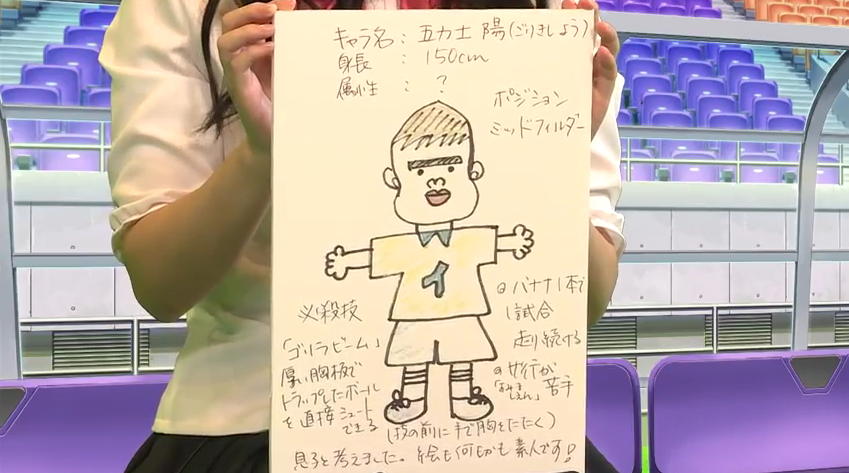 キャラ名:五力士 陽(ごりきし よう)
身長 : 150cm
属性 : ?
ポジション
ミッドフィルダー
イ
必殺技
「ゴリラビーム」
厚い胸板で
トラップしたボール
を直接シュート
できる
(技の前に手で胸をたたく)
◎バナナ1本で
1試合
走り続ける
苦手
息子と考えました。絵も何もかも素人です!